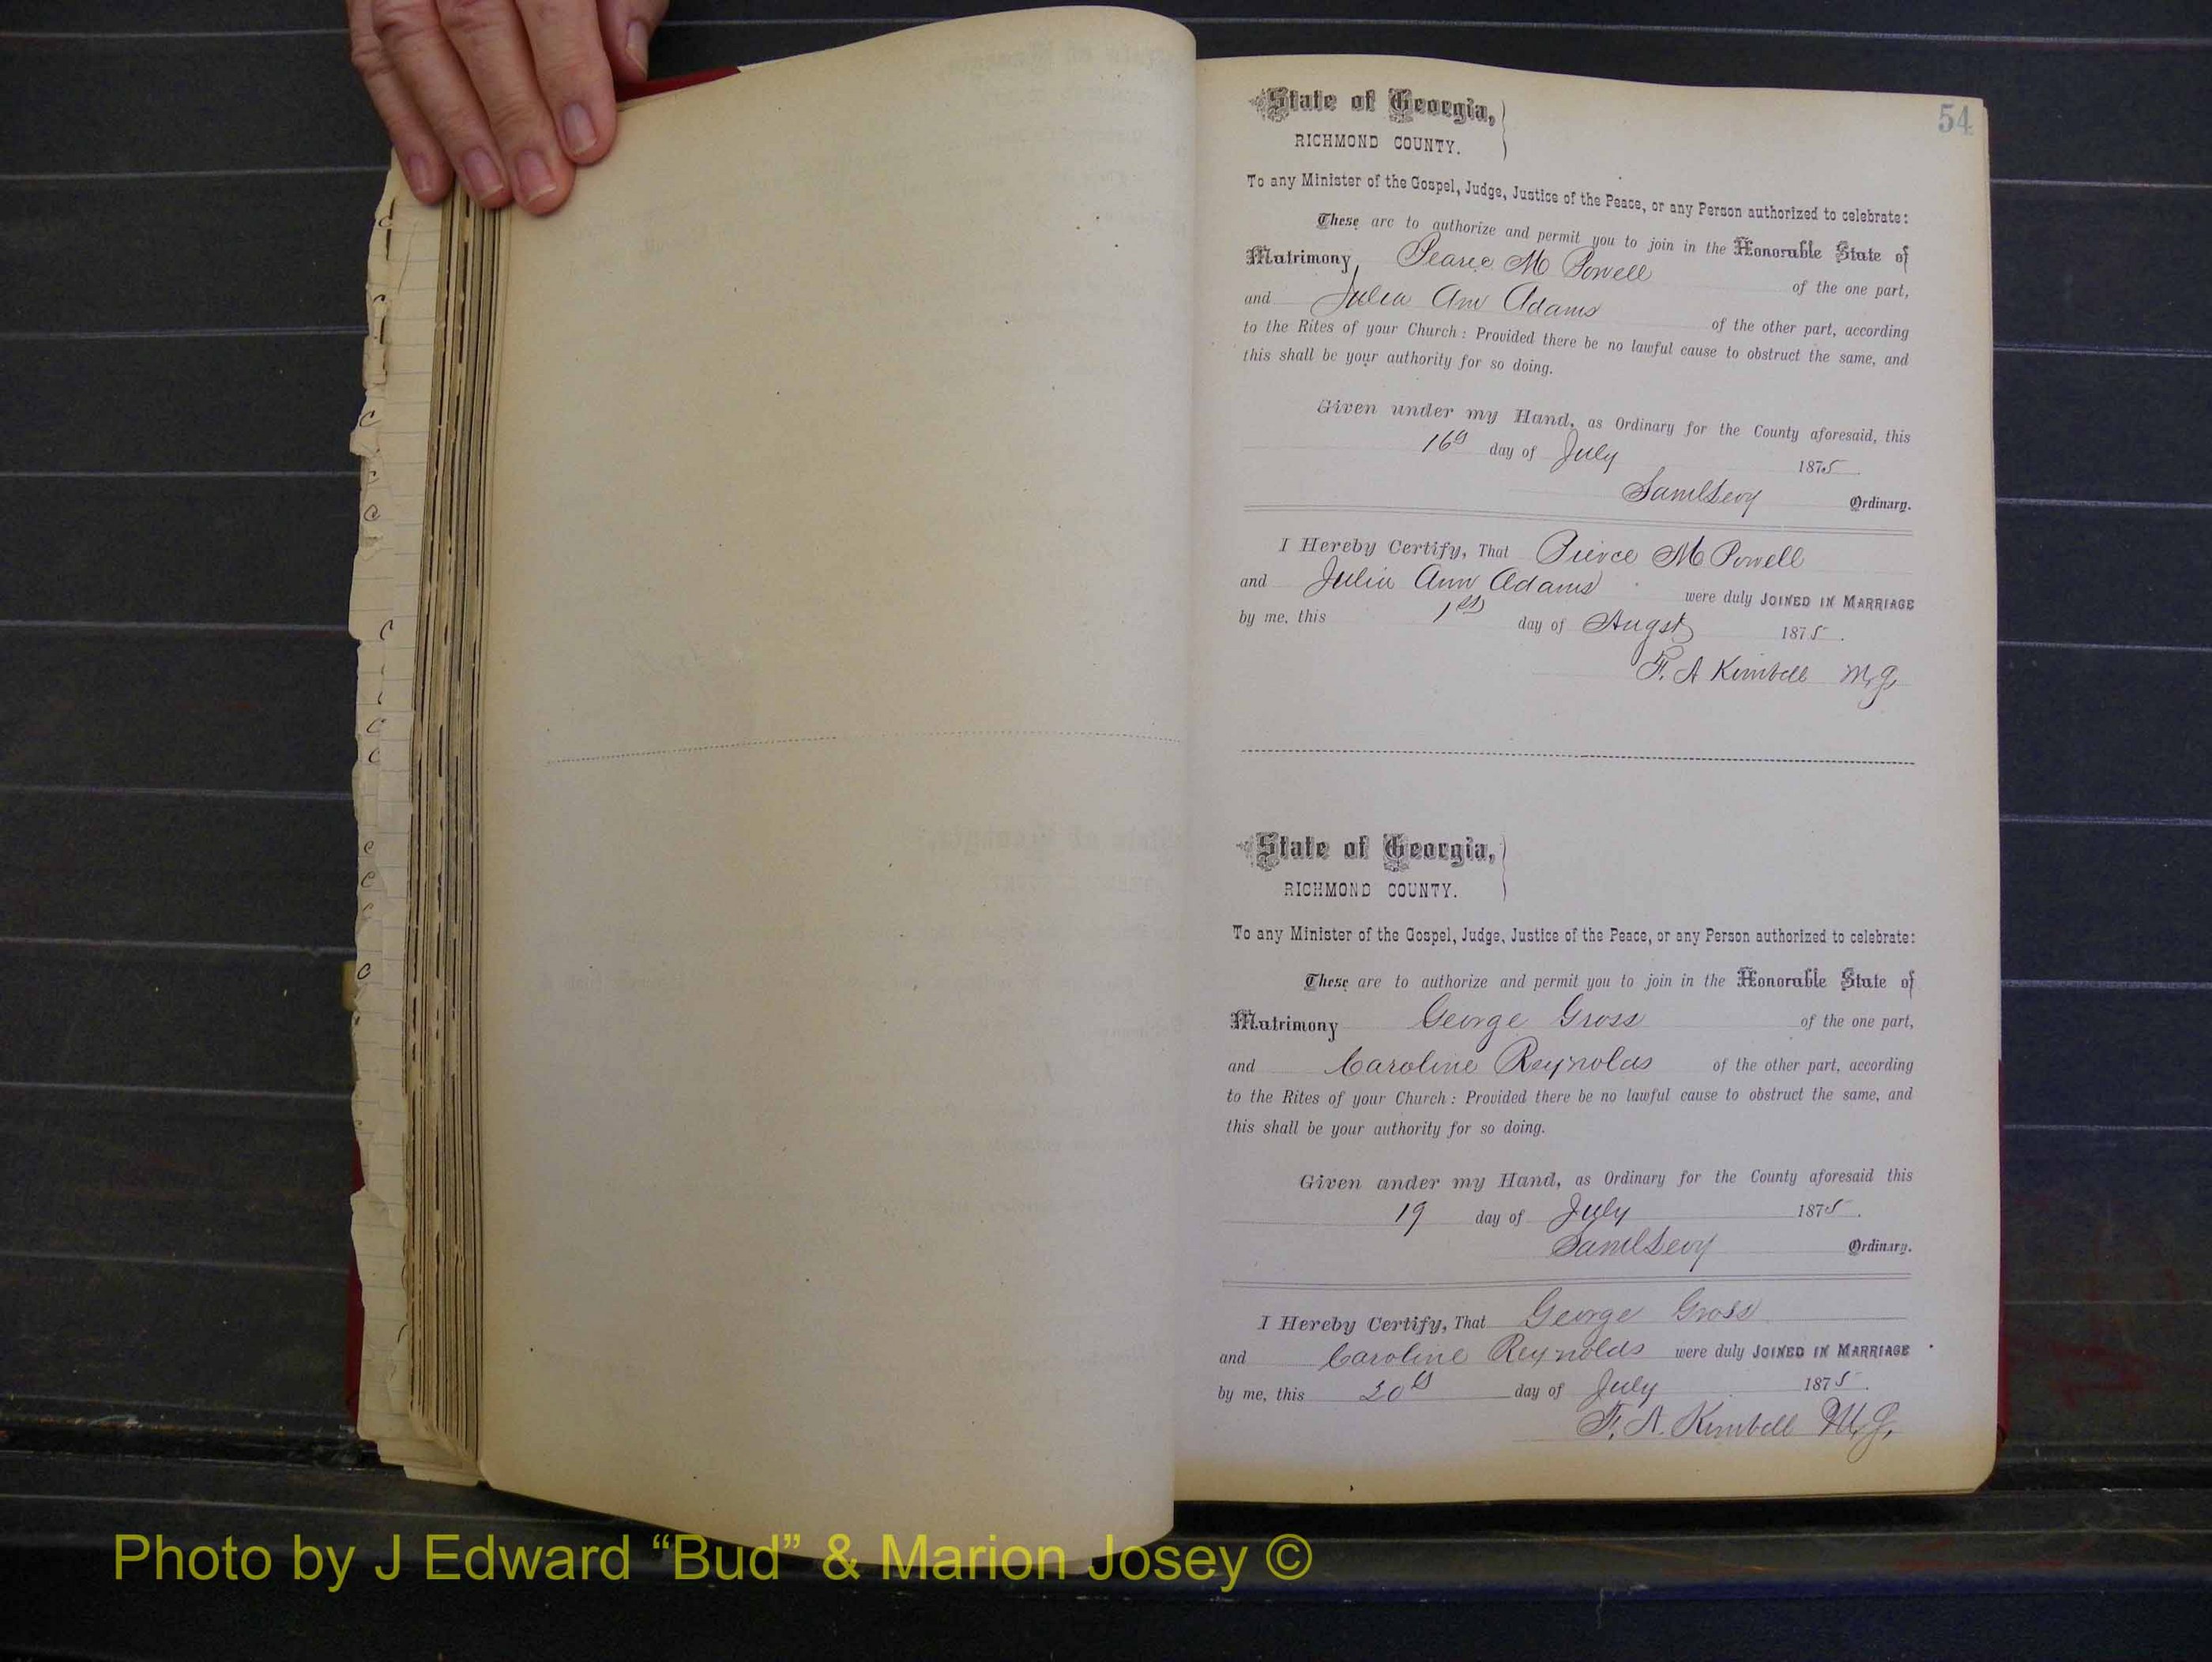 54
State of Georgia,
RICHMOND COUNTY.
To any Minister of the Gospel, Judge, Justice of the Peace, or any Person authorized to celebrate:
These are to authorize and permit you to join in the Honorable State of
Matrimony, Pearce M Powell of the one part,
and Julia Ann Adams of the other part, according
to the Rites of your Church: Provided there be no lawful cause to obstruct the same, and
this shall be your authority for so doing.
Given under my Hand, as Ordinary for the County aforesaid, this
16th day of July 1875.
Saml Levy Ordinary.
I Hereby Certify, That Pierce M Powell
and Julia Ann Adams were duly JOINED IN MARRIAGE
by me, this 1st day of Augst 1875.
F. A Kimbell M,g,
State of Georgia,
RICHMOND COUNTY.
To any Minister of the Gospel, Judge, Justice of the Peace, or any Person authorized to celebrate:
These are to authorize and permit you to join in the Honorable State of
Matrimony George Gross of the one part,
and Caroline Reynolds of the other part, according
to the Rites of your Church: Provided there be no lawful cause to obstruct the same, and
this shall be your authority for so doing.
Given under my Hand, as Ordinary for the County aforesaid this
19 day of July 1875.
Saml Levy Ordinary.
I Hereby Certify, That George Gross
and Caroline Reynolds were duly JOINED IN MARRIAGE
by me, this day of July 1875.
F. A. Kimbell M,g,
Photo by J Edward “Bud” & Marion Josey ©